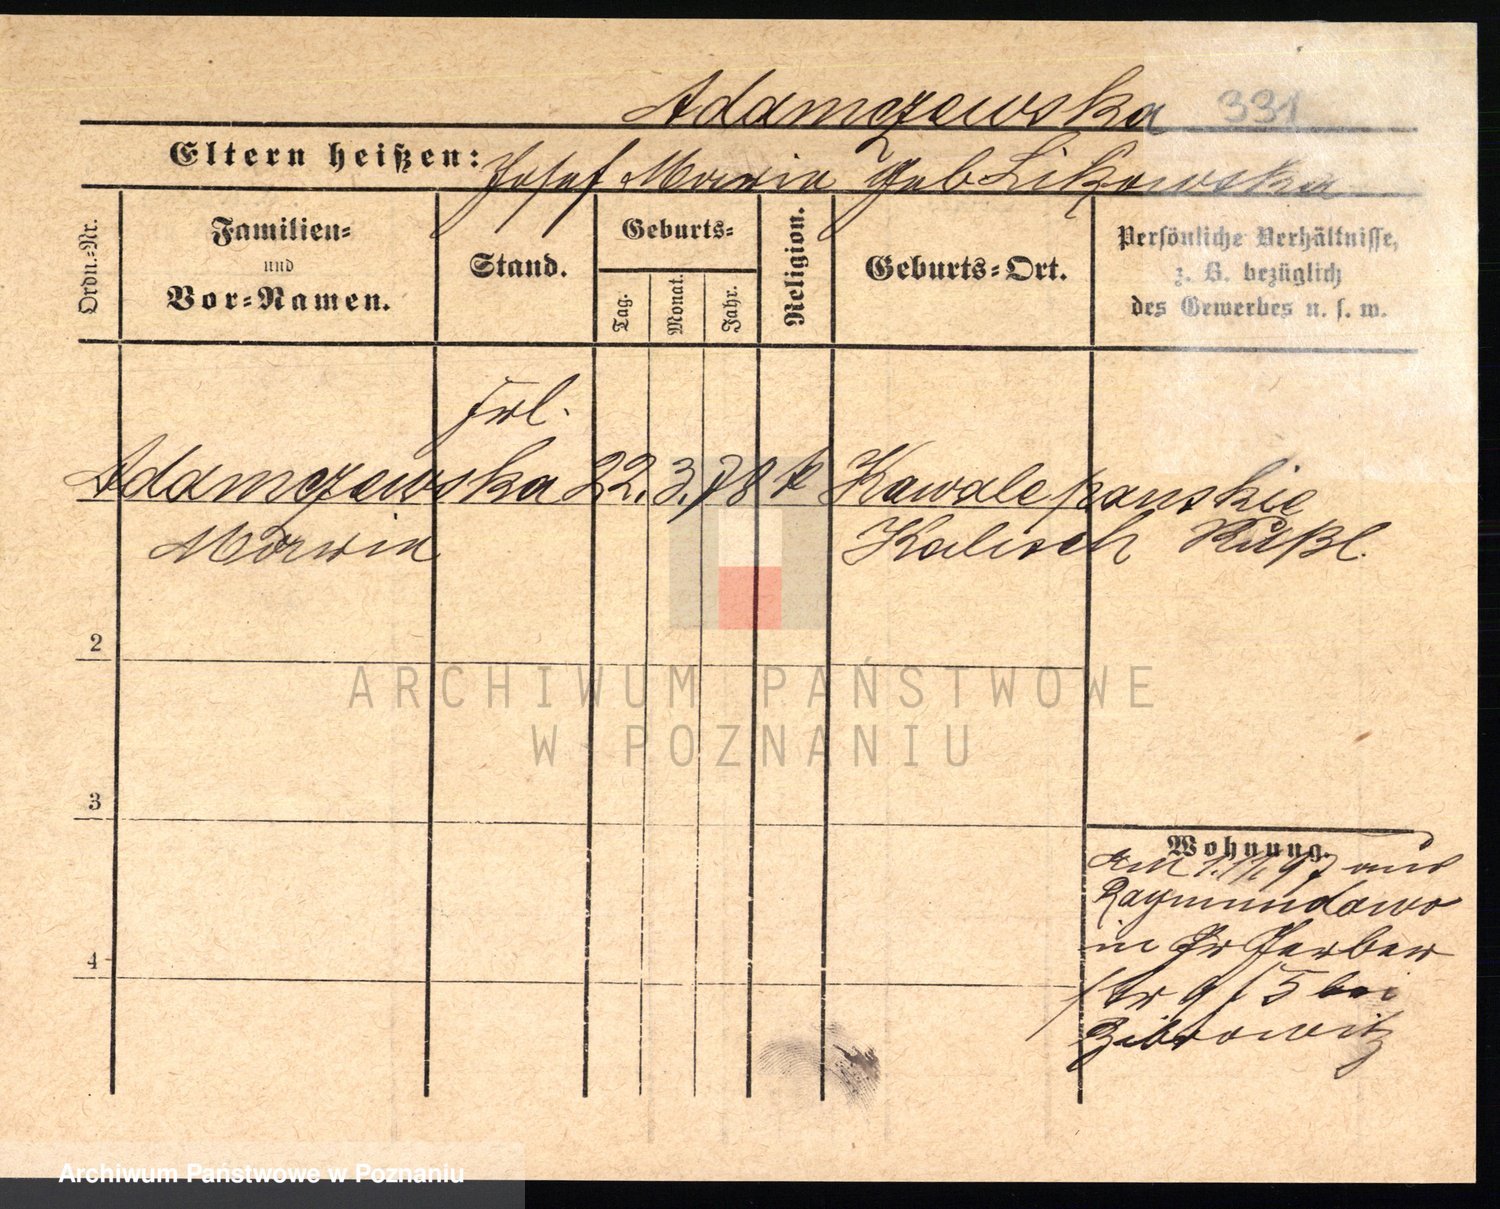 Adamczewska 331
Eltern heißen: Josef Maria geb Likowska
Ordn.-Nr.
Familien-
und
Vor-Namen.
Stand.
Geburts-
Tag.
Monat.
Jahr.
Religion.
Geburts-Ort.
Persönliche Verhältnisse,
z. B. bezüglich
des Gewerbes u. s. w.
Frl.
Adamczewska 22. 3. 78 k Kawale panskie
Maria Kalisch Rußl.
2
3
4
Wohnung.
am 1.11.97 aus
Raymundowo
in Gr Gerber
str 9 / 5 bei
Zibrowitz
ARCHIWUM PAŃSTWOWE
W POZNANIU
Archiwum Państwowe w Poznaniu